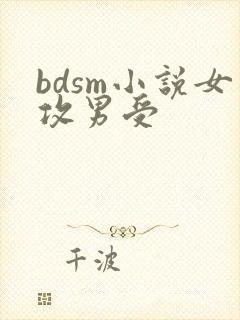 bdsm小説女
攻男受
千波